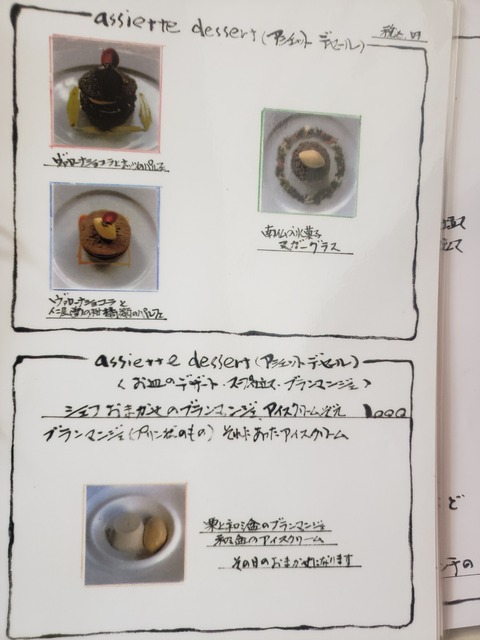 assiette dessert (アシェット デセール)
税込 円
ヴァローナショコラとナッツのパルフェ
南仏の氷菓子
ヌガーグラス
ヴァローナショコラと
柑橘類のパルフェ
assiette dessert (アシェット デセール)
〈 お皿のデザート・スープ仕立て・ブランマンジェ 〉
シェフおまかせのブランマンジェ アイスクリーム添え 1,000
ブランマンジェ(プリン状のもの) それにあったアイスクリーム
栗と和三盆のブランマンジェ
和三盆のアイスクリーム
その日のおまかせになります